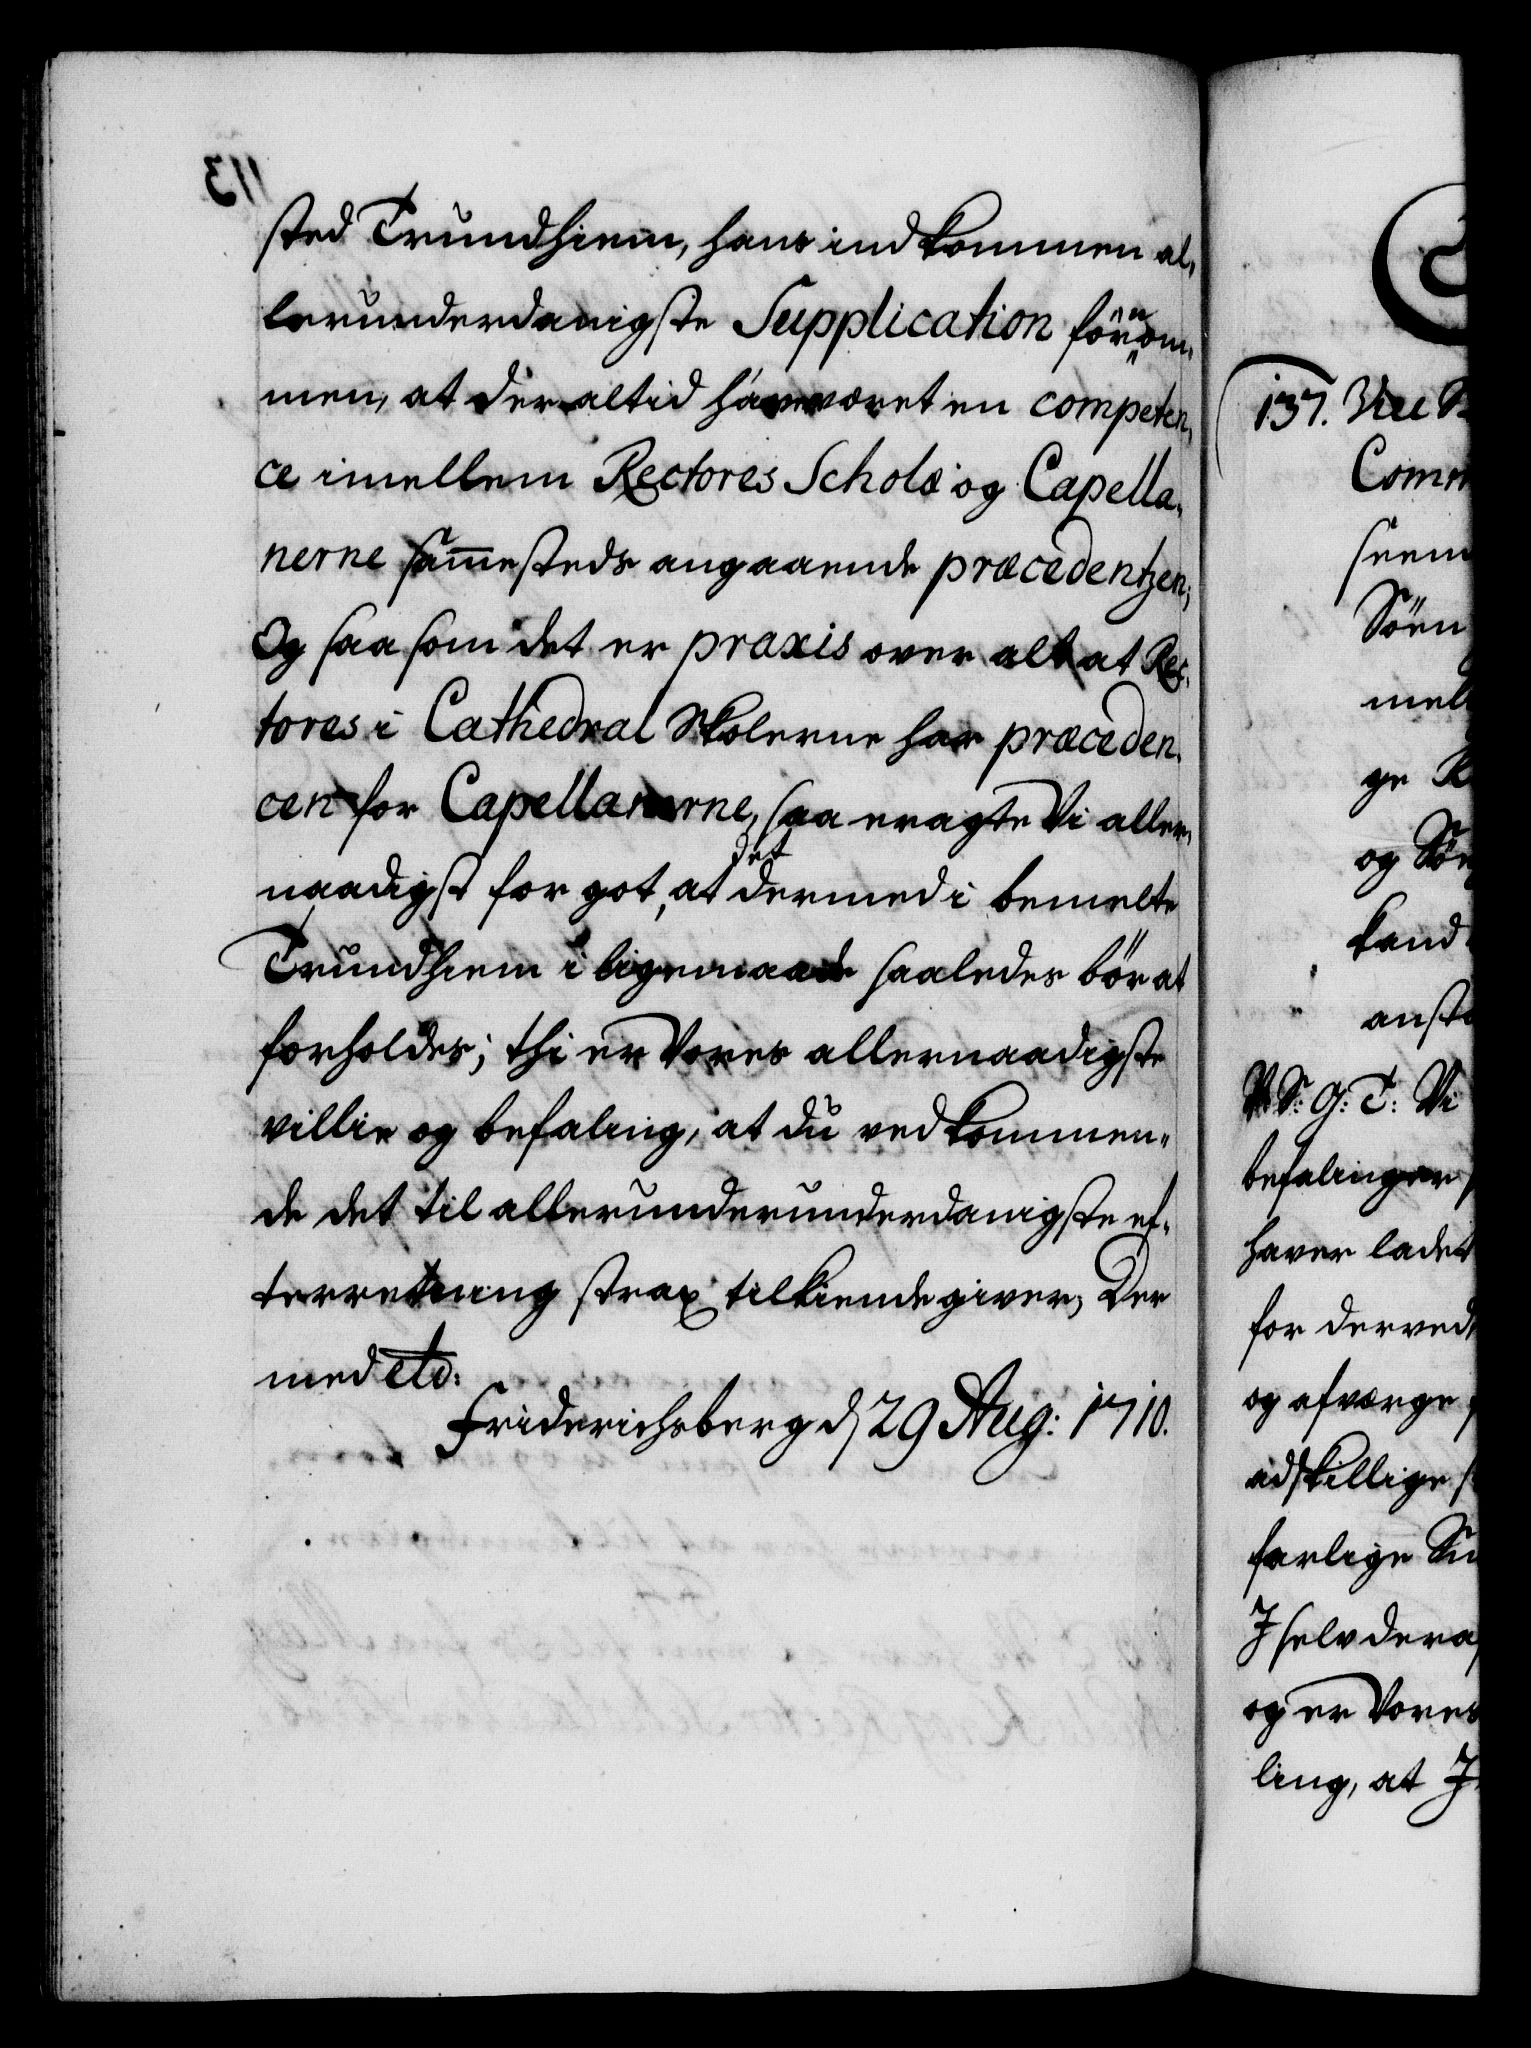 113
sted Trundhiem, hans indkommen al,
lerunderdanigste Supplication förnom,
men, at der altid hâr været en competen,
ce imellem Rectores Scholæ og Capella,
nerne sam̅esteds angaaende præcedentzen;
Og saa som det er praxis over alt at Rec,
tores i Cathedral Skolerne har præceden,
cen for Capellanerne, saa eragte Vi aller,
naadigst for got, at det dermed i bemelte
Trundhiem i ligemaade saaledes bör at
forholdes; thi er Vores allernaadigste
villie og befaling, at du vedkommen,,
de det til allerunderunderdanigste ef,
terretning strax tilkiendegiver; Der
med etc:
Friderichsberg d 29 Aug: 1710.
137.
Com
Sön
mell
ge
og Sön
kand
anst
V S: G: T: Vi
befalinger
haver ladet
for derved
og afværge
adskillige
farlige
I selv dera
og er Vores
ling, at I